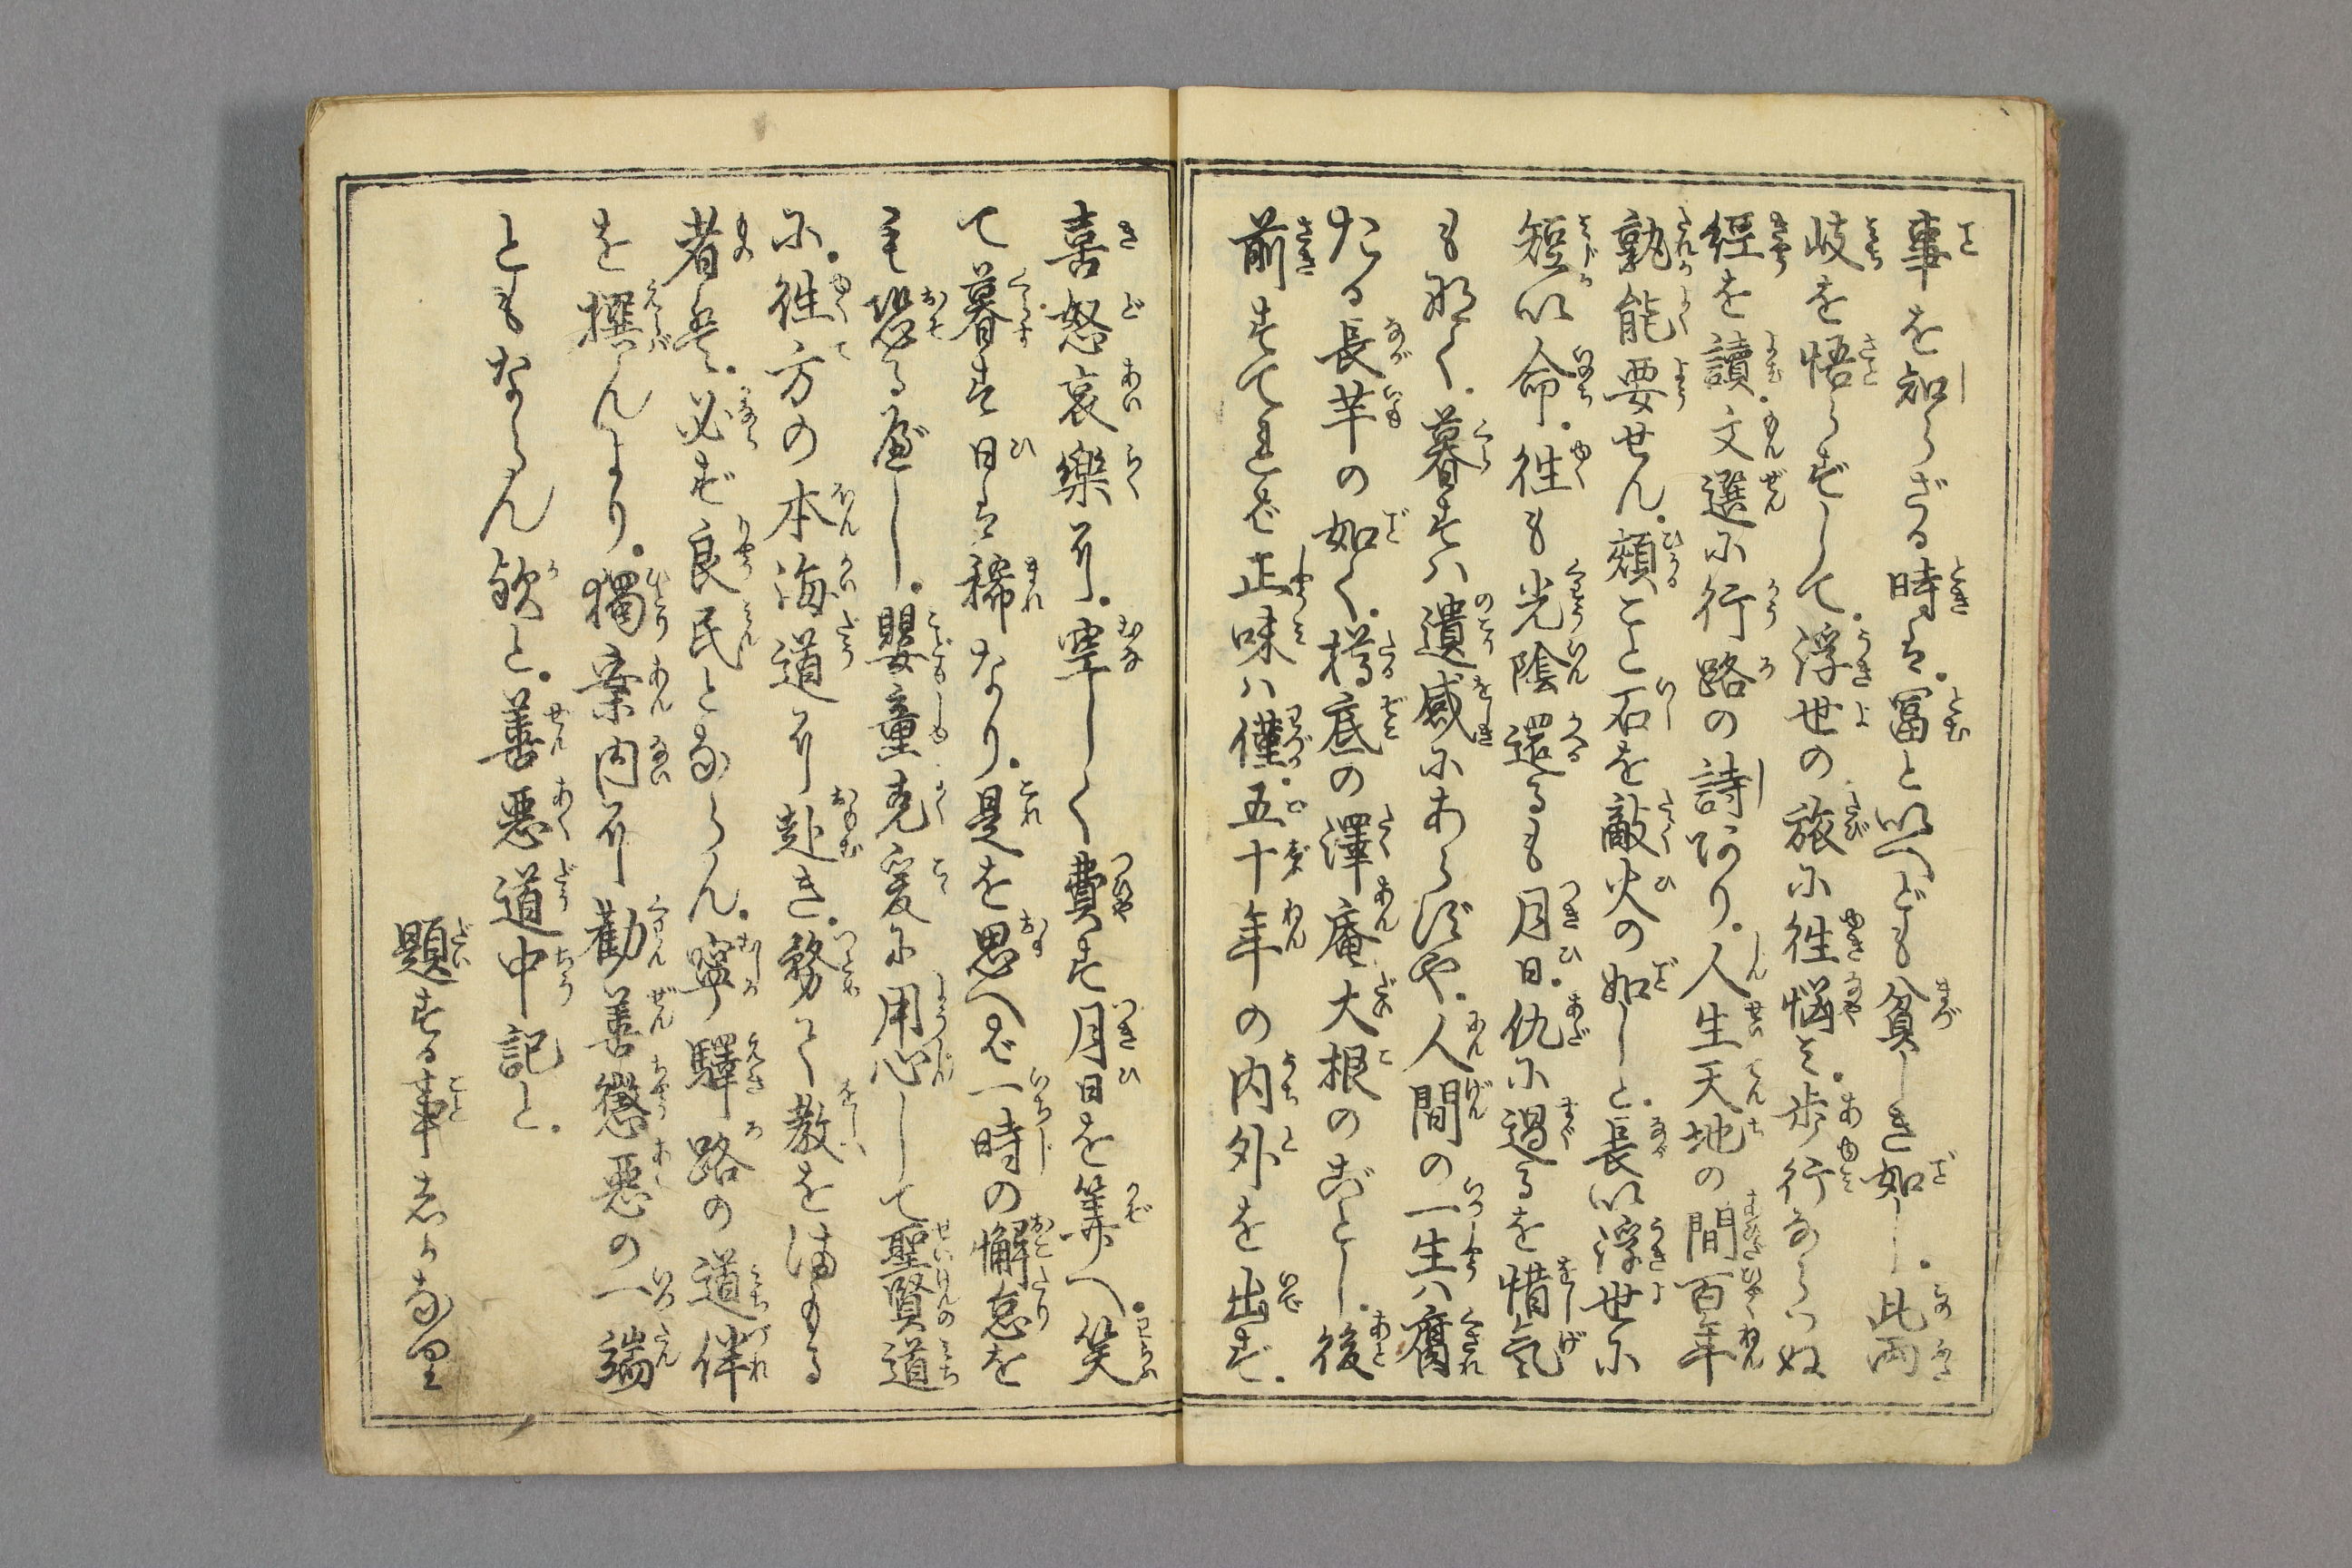 事を知らざる時は。冨と以へども貧しき如し。此両
岐を悟らずして。浮世の旅に徃悩そ。歩行ならひぬ
經を讀。文選に行路の詩あり。人生天地の間百年
孰能要せん。頬こと石を敲火の如しと。長い浮世に
短い命。徃も光陰還るも月日。仇に過るを惜気
も那く。暮すハ遺感にあらずや。人間の一生ハ腐
たる長芋の如く。樽底の澤庵大根のごとし。後
前すてれば正味ハ僅。五十年の内外を出ず。
喜怒哀樂に。空しく費す月日を算へ。笑
て暮す日は稀なり。是を思へば一時の懈怠を
も恐る べし。嬰童克爰に用心して聖賢道
に。徃方の本海道に赴き。務て教をまもる
者は。必ず良民とならん。寧驛路の道伴
を撰んより。獨案内に勸善懲悪の一端
ともならん歟と。善悪道中記と。
題する事しかなり